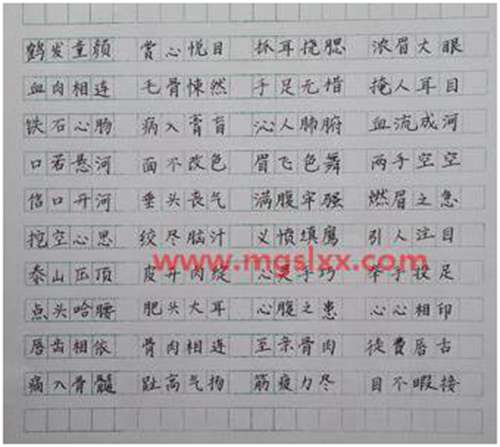 鹤发童颜 赏心悦目 抓耳挠腮 浓眉大眼
血肉相连 毛骨悚然 手足无措 掩人耳目
铁石心肠 病入膏肓 沁人肺腑 血流成河
口若悬河 面不改色 眉飞色舞 两手空空
信口开河 垂头丧气 满腹牢强 燃眉之急
挖空心思 绞尽脑汁 义愤填鹰 引人注目
www.mgslxx.com
泰山压顶 皮开肉绽 心灵手巧 举手投足
点头哈腰 肥头大耳 心腹之患 心心相印
唇齿相依 骨肉相连 至亲骨肉 徒费唇舌
痛入骨髓 趾高气扬 筋疲力尽 目不暇接